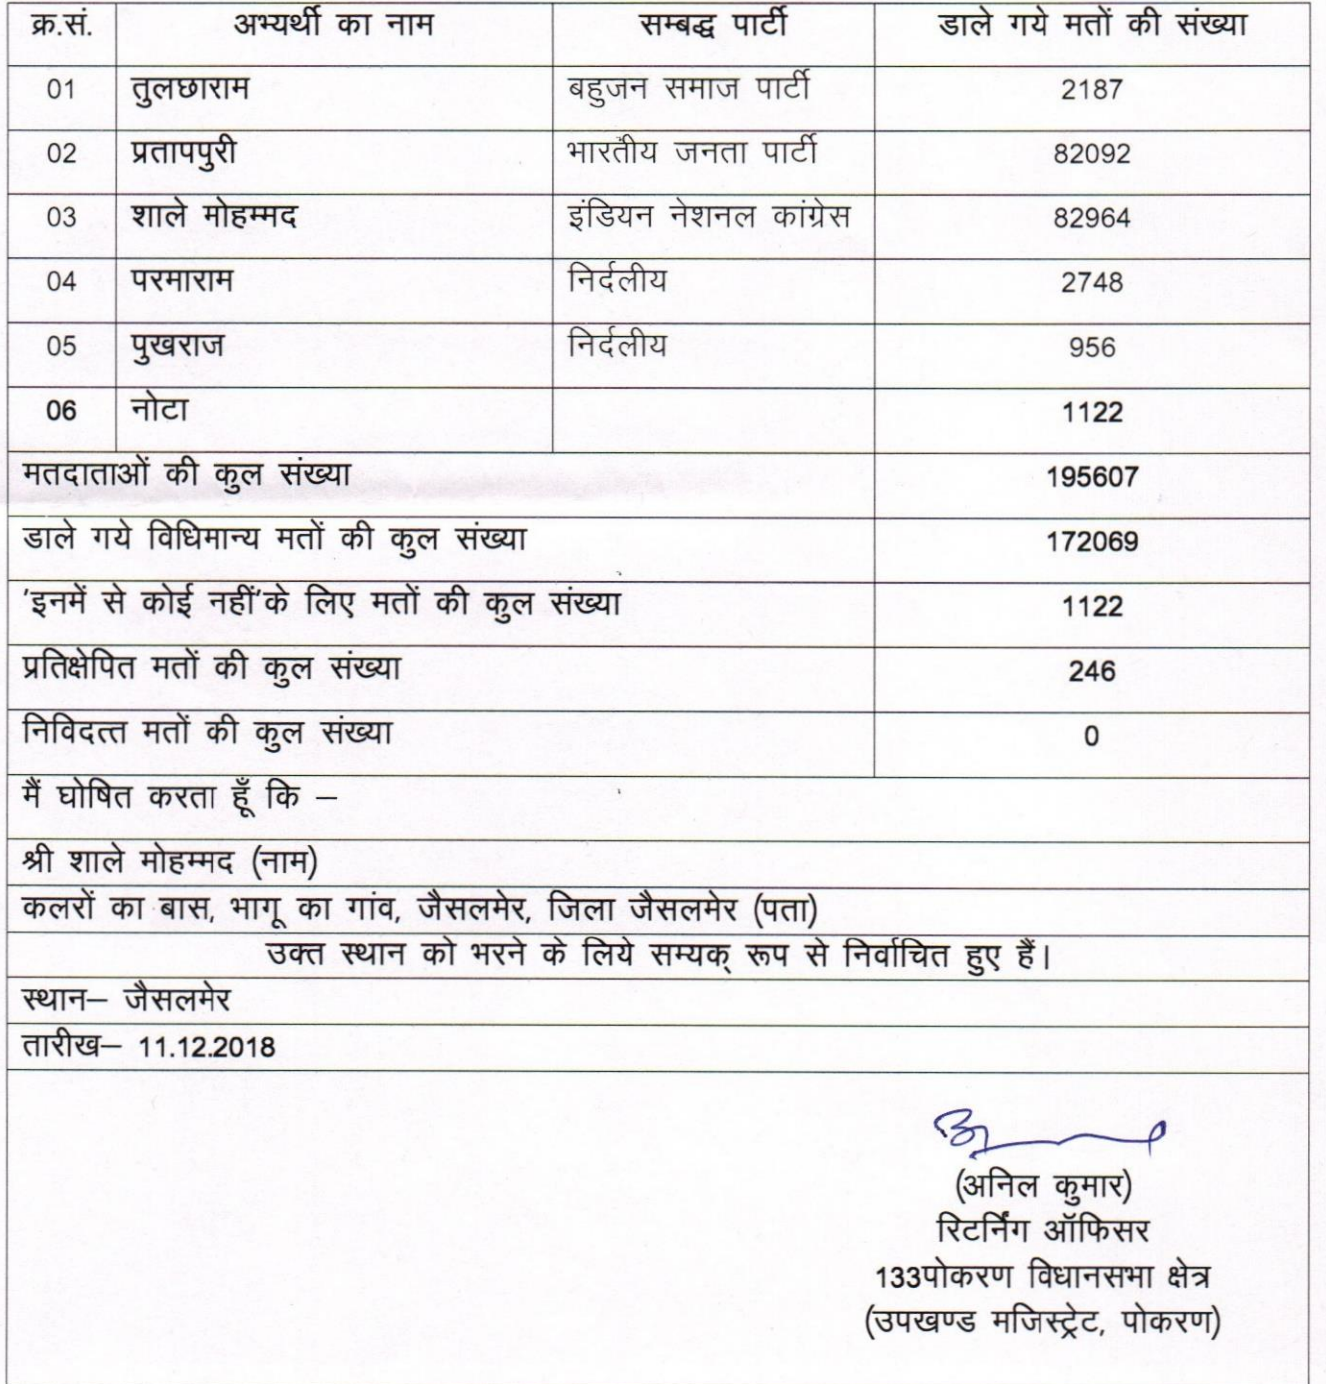 क्र.सं. अभ्यर्थी का नाम सम्बद्ध पार्टी डाले गये मतों की संख्या
01 तुलछाराम बहुजन समाज पार्टी 2187
02 प्रतापपुरी भारतीय जनता पार्टी 82092
03 शाले मोहम्मद इंडियन नेशनल कांग्रेस 82964
04 परमाराम निर्दलीय 2748
05 पुखराज निर्दलीय 956
06 नोटा 1122
मतदाताओं की कुल संख्या 195607
डाले गये विधिमान्य मतों की कुल संख्या 172069
'इनमें से कोई नहीं'के लिए मतों की कुल संख्या 1122
प्रतिक्षेपित मतों की कुल संख्या 246
निविदत्त मतों की कुल संख्या 0
मैं घोषित करता हूँ कि –
श्री शाले मोहम्मद (नाम)
कलरों का बास, भागू का गांव, जैसलमेर, जिला जैसलमेर (पता)
उक्त स्थान को भरने के लिये सम्यक् रूप से निर्वाचित हुए हैं।
स्थान– जैसलमेर
तारीख– 11.12.2018
(अनिल कुमार)
रिटर्निंग ऑफिसर
133पोकरण विधानसभा क्षेत्र
(उपखण्ड मजिस्ट्रेट, पोकरण)